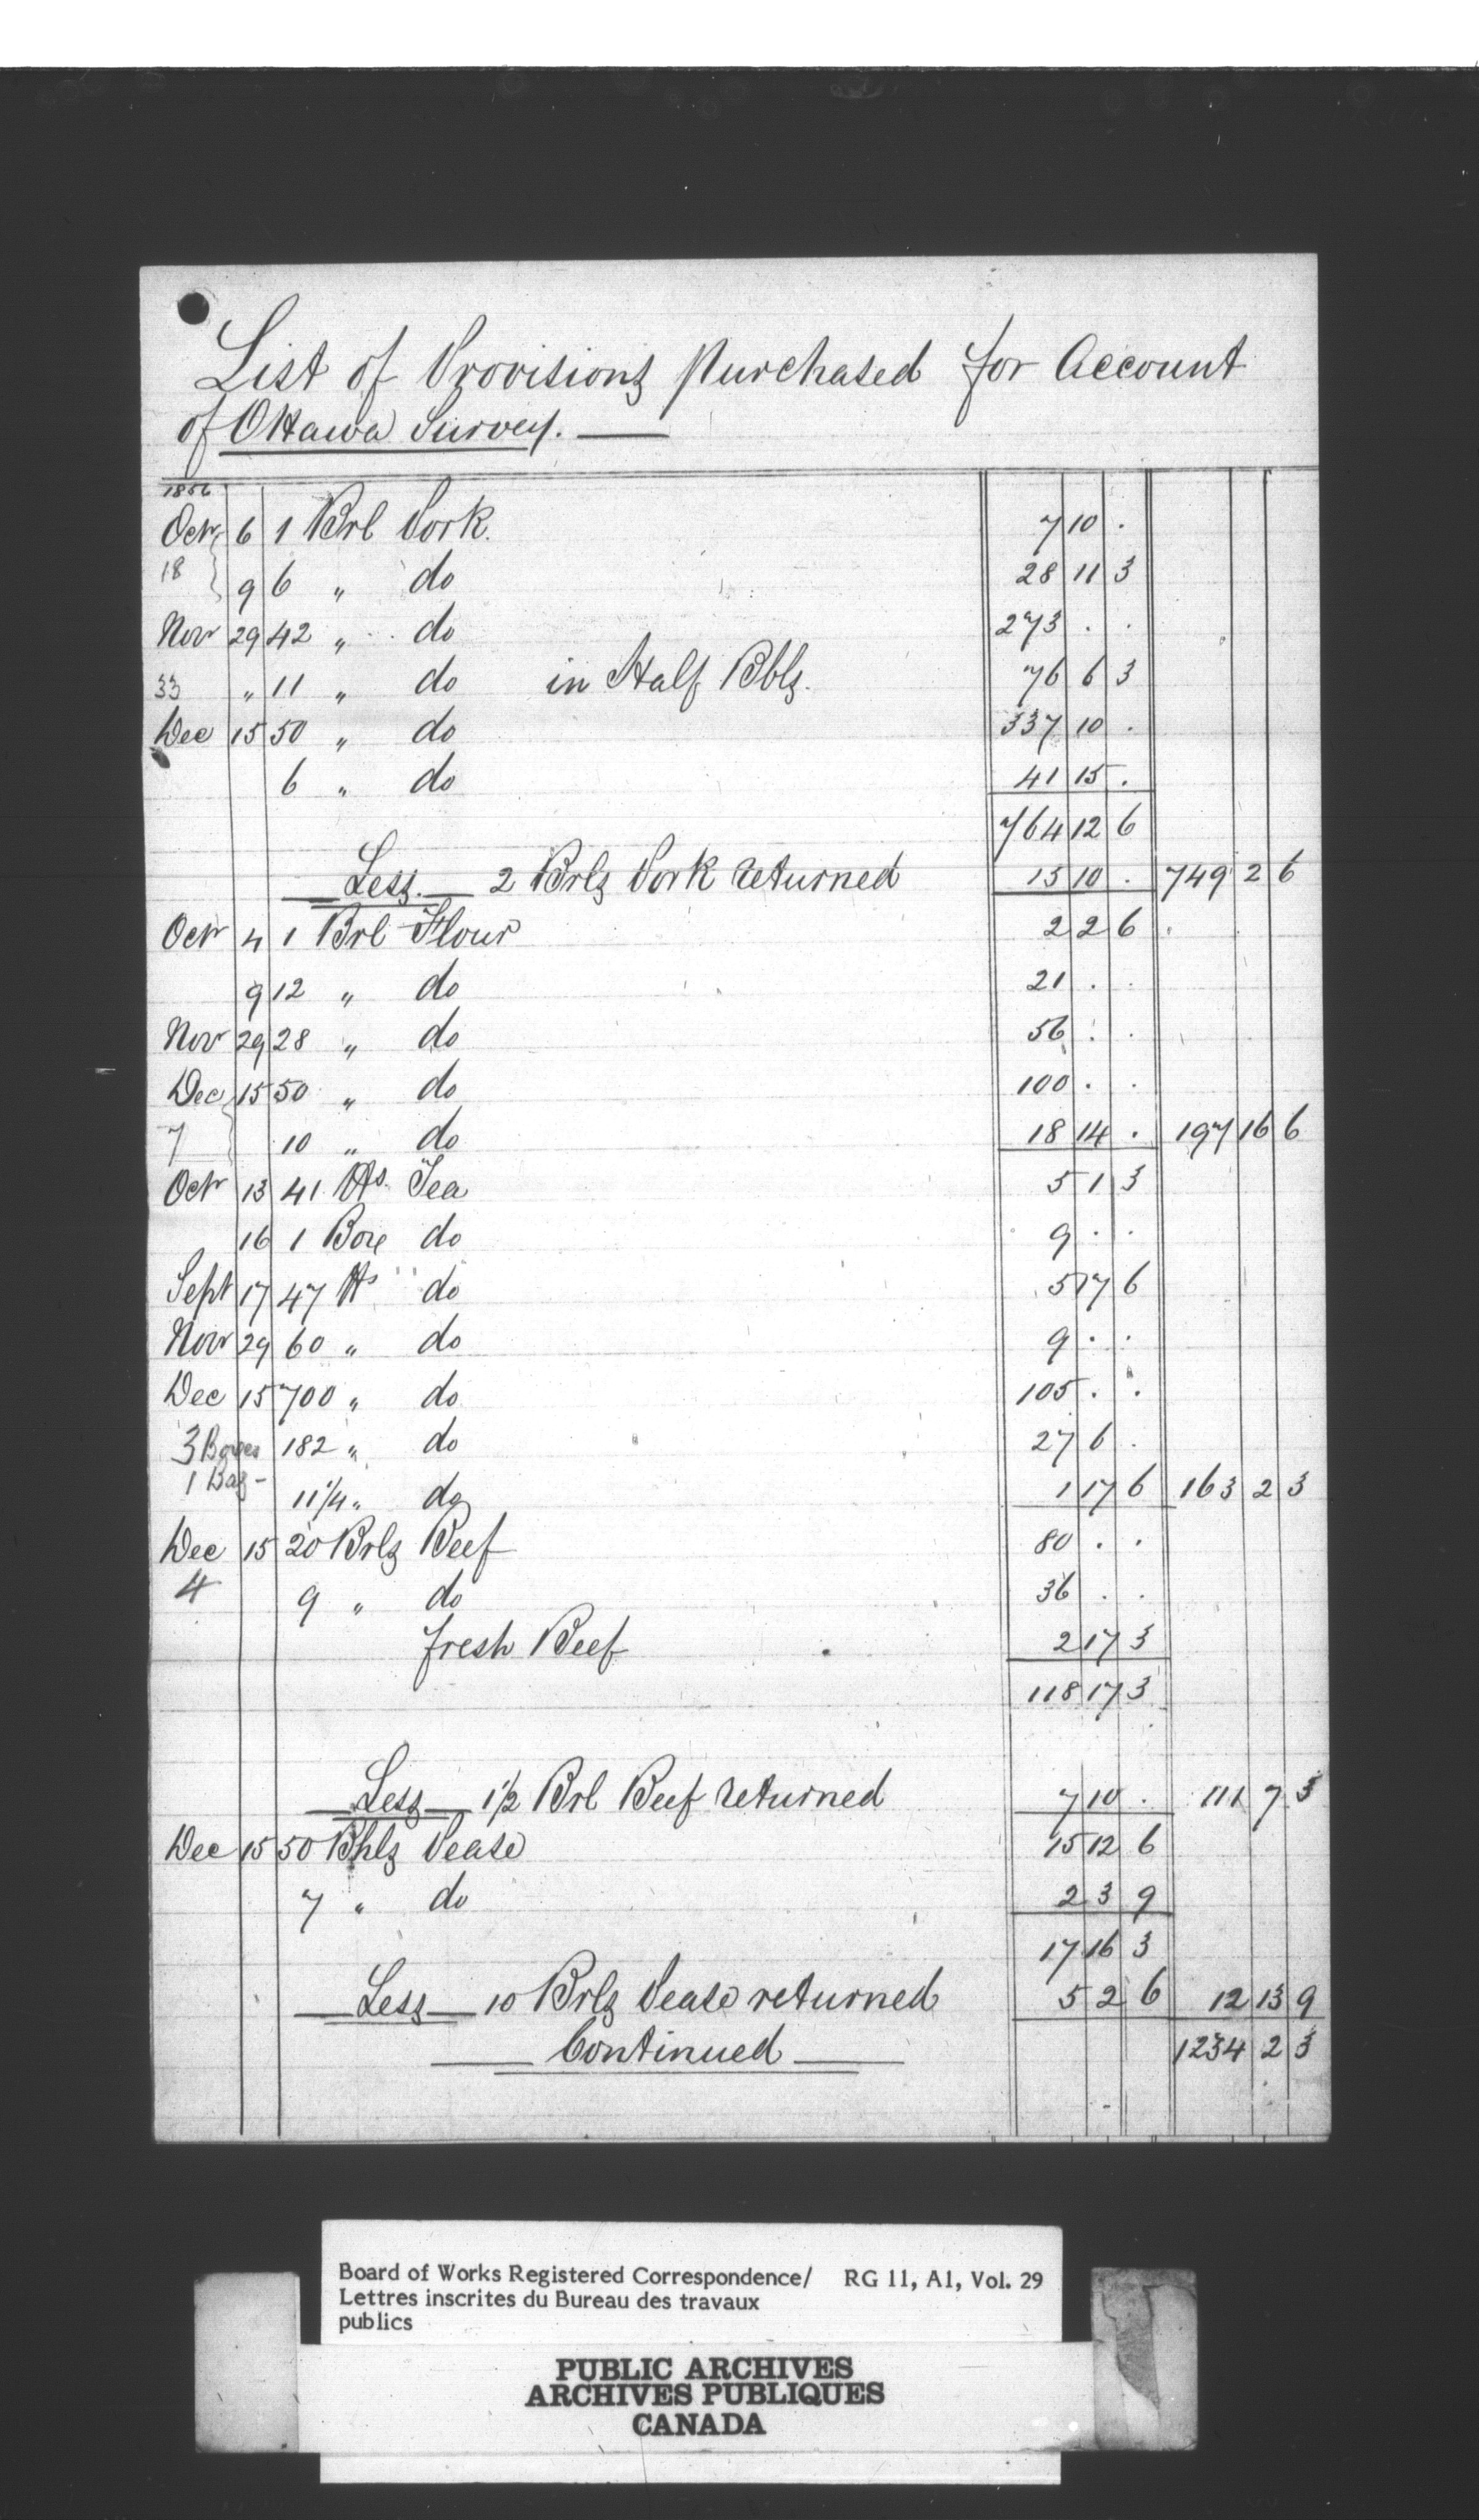 List of Provisions purchased for Account
of Ottawa Survey.
1856
Octr 6 1 Brl Pork. 7 10 .
18 9 6 " do 28 11 3
Novr 29 42 " do 273 . .
33 " 11 " do in Half Bbls. 76 6 3
Dec 15 50 " do 337 10 .
6 " do 41 15 .
764 12 6
Less. 2 Brls Pork returned 15 10 . 749 2 6
Octr 4 1 Brl Flour 2 2 6
9 12 " do 21 . .
Nov 29 28 " do 56 . .
Dec 15 50 " do 100 . .
7 10 " do 18 14 . 197 16 6
Octr 13 41 lbs. Tea 5 1 3
16 1 Box do 9 . .
Sept 17 47 lbs do 5 17 6
Novr 29 60 " do 9 . .
Dec 15 700 " do 105 . .
3 Boxes 182 " do 27 6 .
1 Bag - 11 1/4 " do 1 17 6 163 2 3
Dec 15 20 Brls Beef 80 . .
4 9 " do 36 . .
fresh Beef 2 17 3
118 17 3
Less 1 1/2 Brl Beef returned 7 10 . 111 7 3
Dec 15 50 Bhls Pease 15 12 6
7 " do 2 3 9
17 16 3
Less 10 Brls Pease returned 5 2 6 12 13 9
Continued 1234 2 3
Board of Works Registered Correspondence/ RG 11, A1, Vol. 29
Lettres inscrites du Bureau des travaux
publics
PUBLIC ARCHIVES
ARCHIVES PUBLIQUES
CANADA